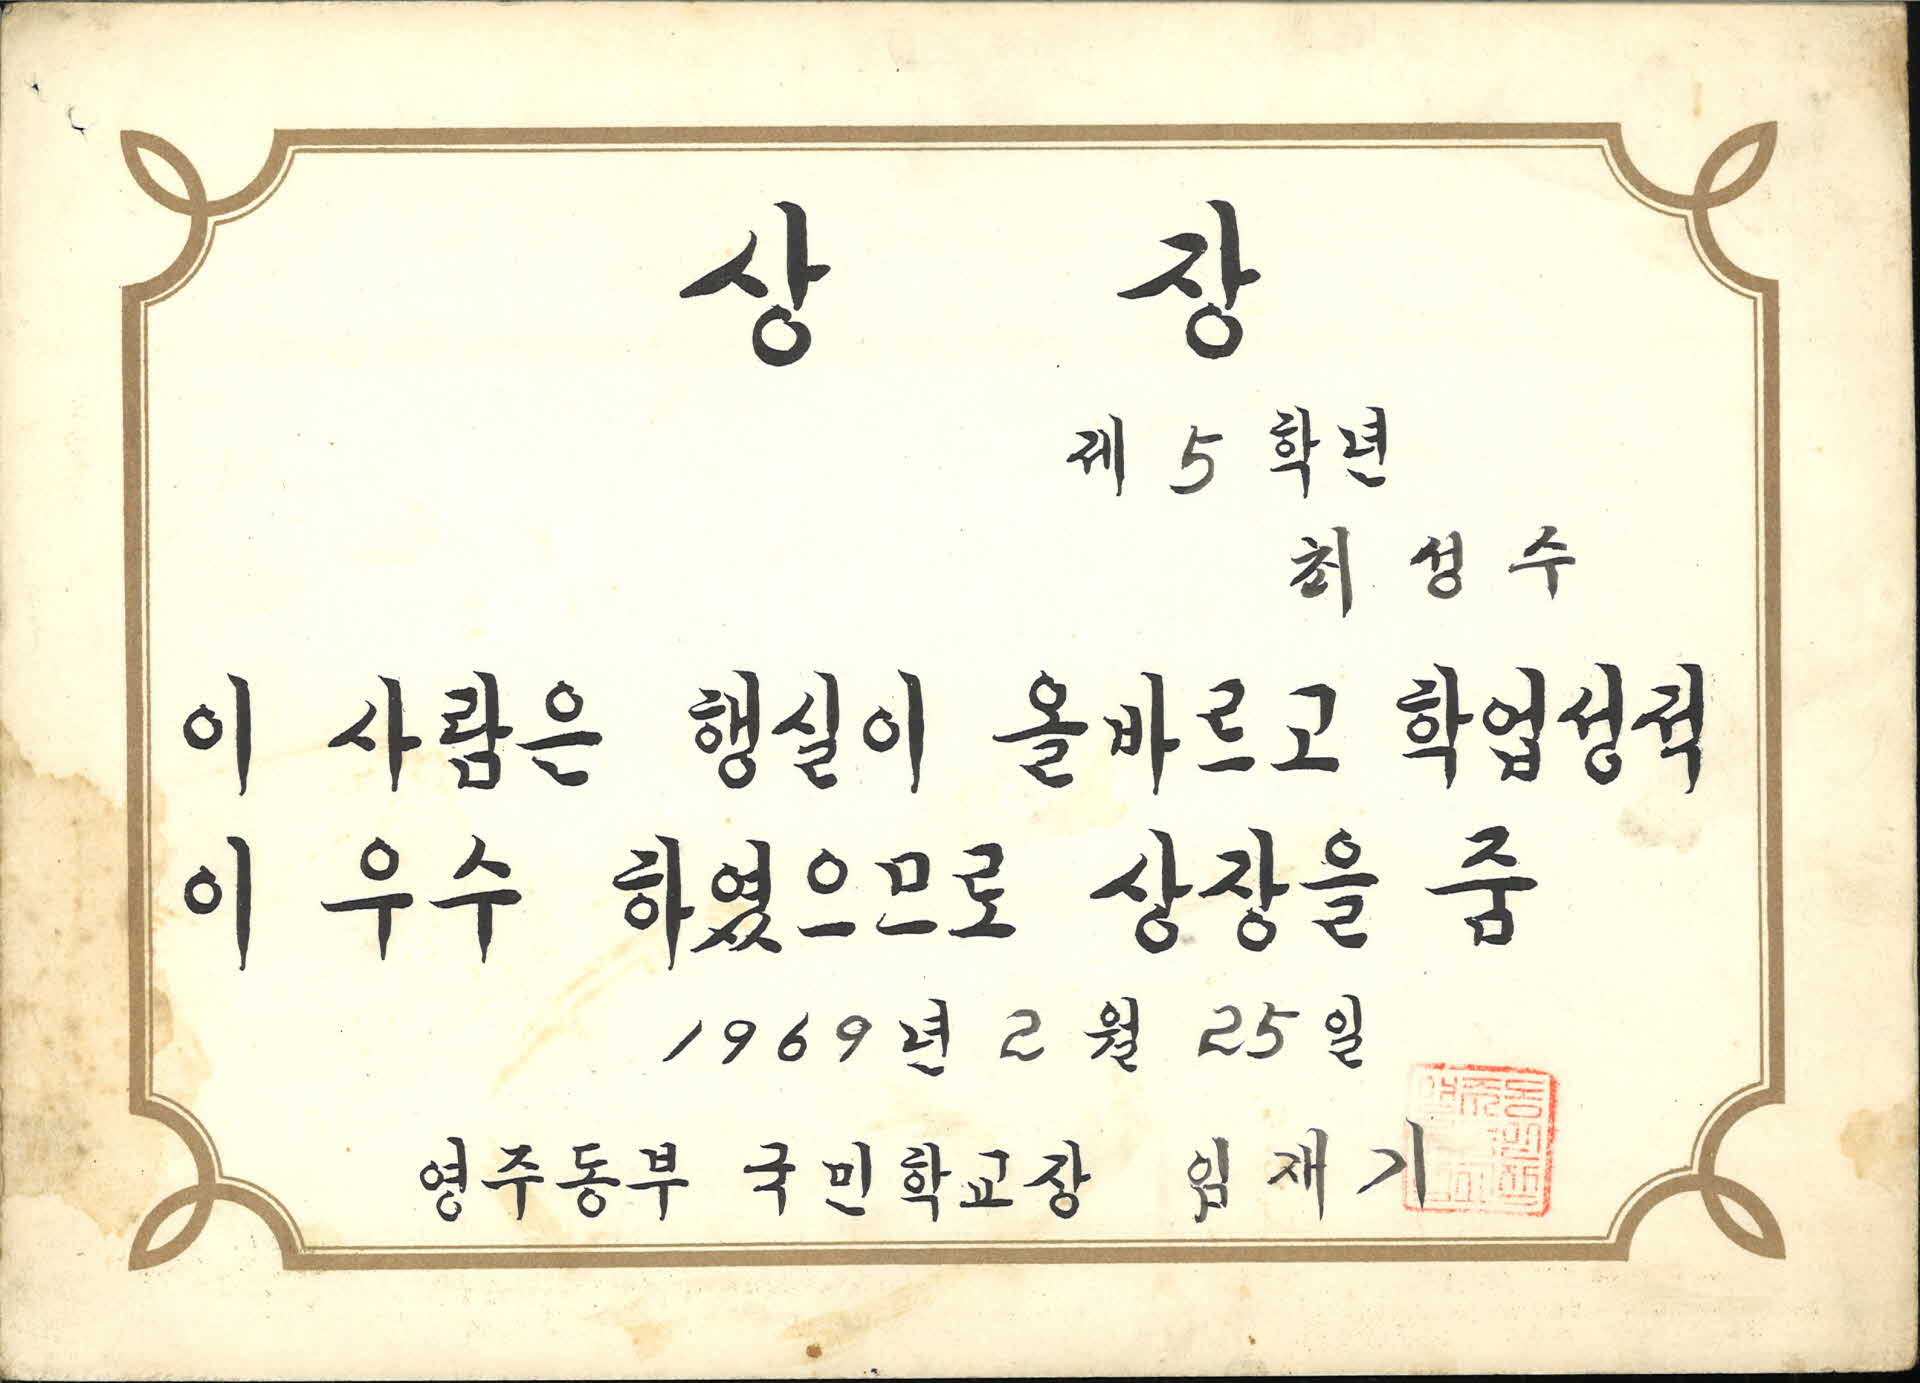 상 장
제 5 학년
최 성 수
이 사람은 행실이 올바르고 학업성적
이 우수 하였으므로 상장을 줌
1969년 2월 25일
영주동부 국민학교장 임재기